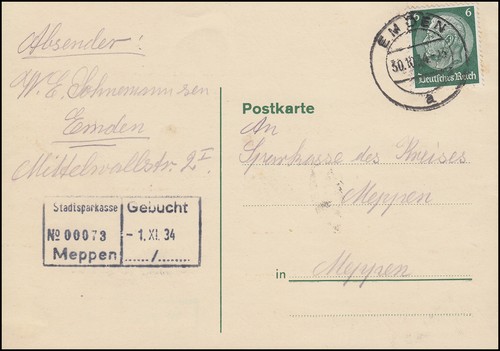 Absender:
W. E. Sohnemann sen
Emden
Mittelwallstr. 2I
Stadtsparkasse
№ 00073
Meppen
Gebucht
- 1. XI. 34
EMDEN
30.10.
a
6
Deutsches Reich
Postkarte
An
Sparkasse des Kreises
Meppen
in Meppen